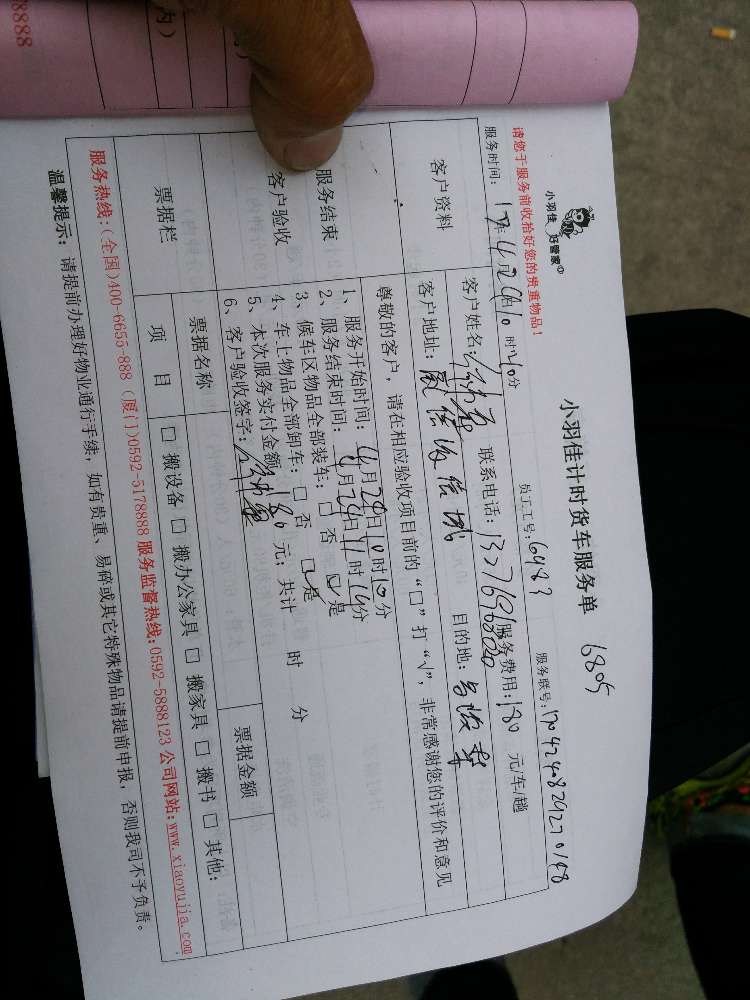 小羽佳 好管家
小羽佳计时货车服务单 6805
请您于服务前收拾好您的贵重物品！
员工工号：6483
服务时间：17年4月24日10时40分
客户资料
客户姓名： 联系电话： 服务费用：180 元/车/趟
客户地址： 目的地：
服务结束
客户验收
尊敬的客户，请在相应验收项目前的“□”打“√”，非常感谢您的评价和意见
1、服务开始时间：4月24日10时10分
2、服务结束时间：4月24日11时10分
3、候车区物品全部装车；□ 否 ☑ 是
4、车上物品全部卸车；□ 否 ☑ 是
5、本次服务实付金额：180 元；共计 时 分
6、客户验收签字：
票据栏
票据名称 票据金额
项 目 □ 搬设备 □ 搬办公家具 □ 搬家具 □ 搬书 □ 其他：
服务热线：(全国)400-6655-888 (厦门)0592-5178888 服务监督热线：0592-5888123 公司网站：www.xiaoyujia.com
温馨提示：请提前办理好物业通行手续，如有贵重、易碎或其它特殊物品请提前申报，否则我司不予负责。
内）
8888